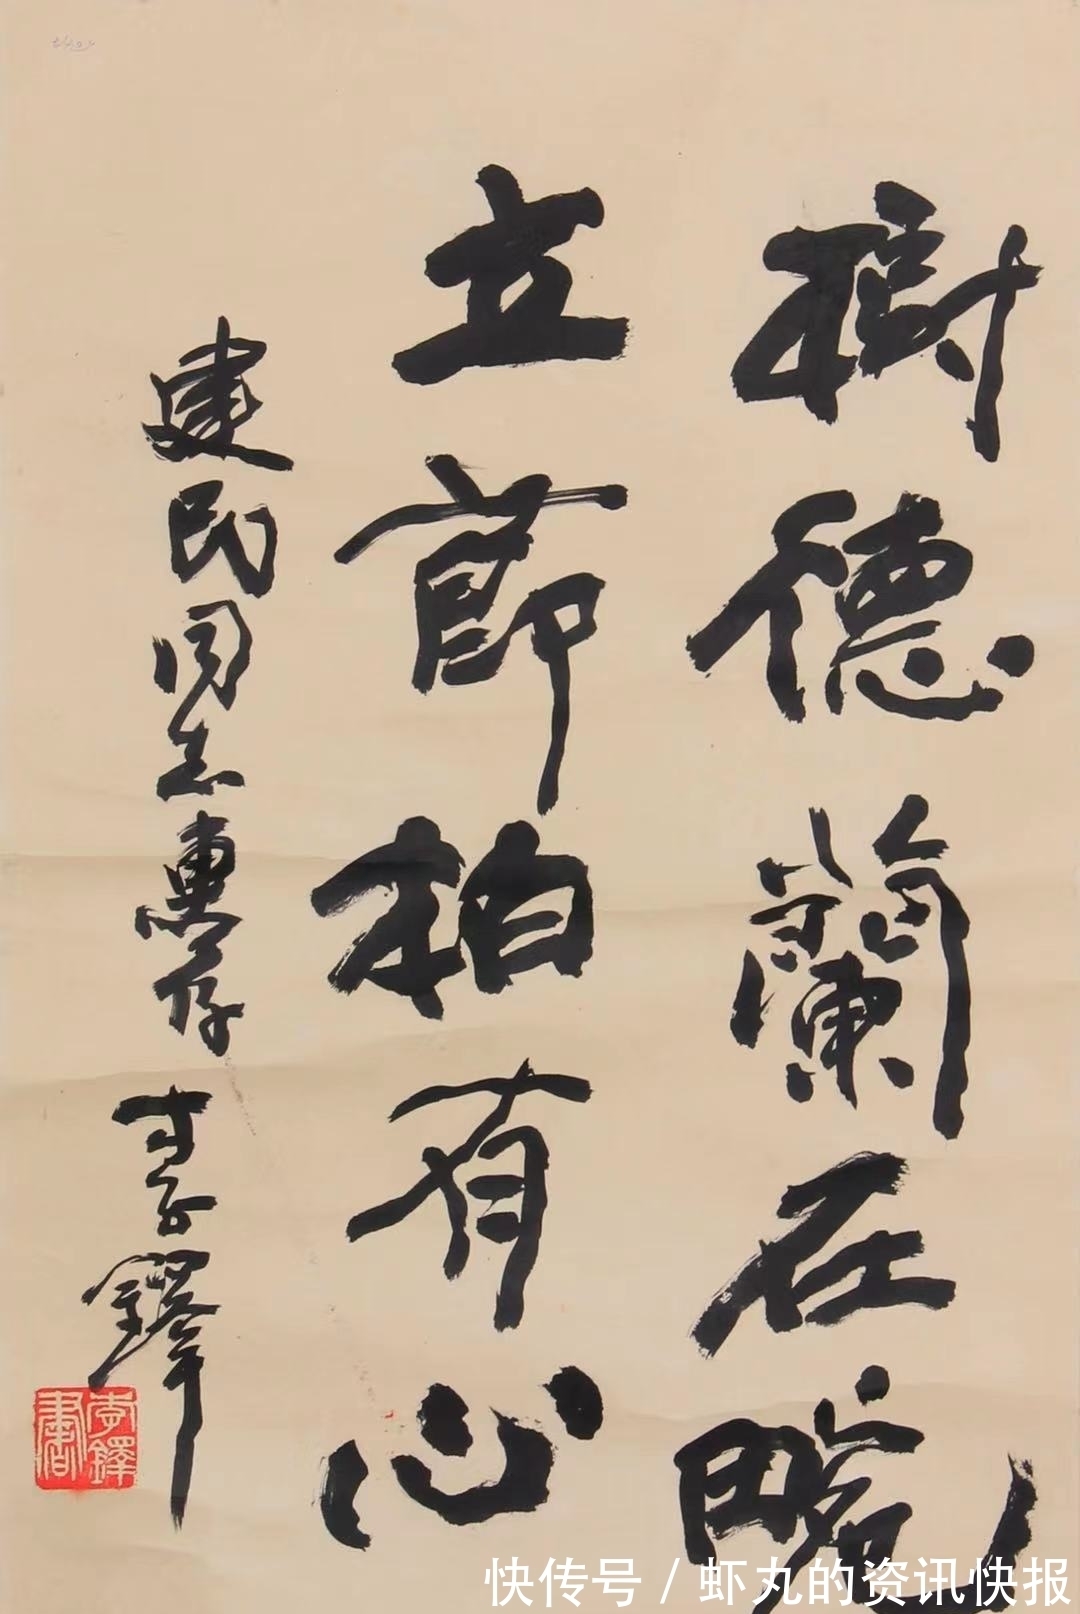 樹德蘭在畹
立節柏有心
建民同志惠存
李鐸
李鐸書
快传号 / 虾丸的资讯快报